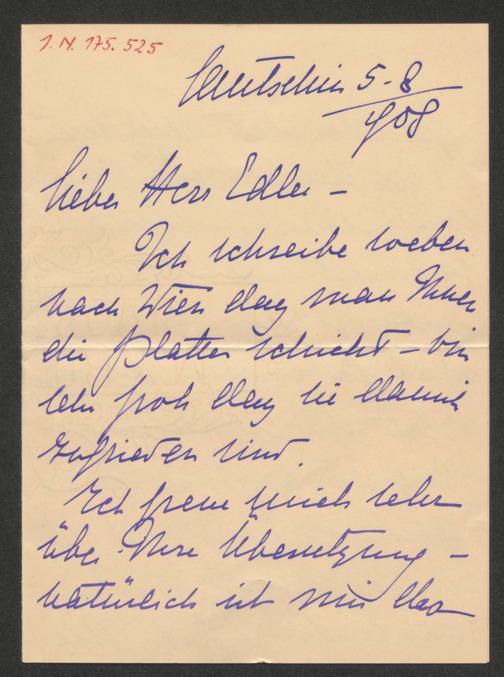 J. N. 175.525
Lautschin 5-8
908
lieber Herr Edler –
Ich schreibe soeben
nach Wien dass man Ihnen
die Platten schickt – bin
sehr froh dass sie damit
zufrieden sind.
Ich freue mich sehr
über Ihre Übersetzung –
natürlich ist mir das